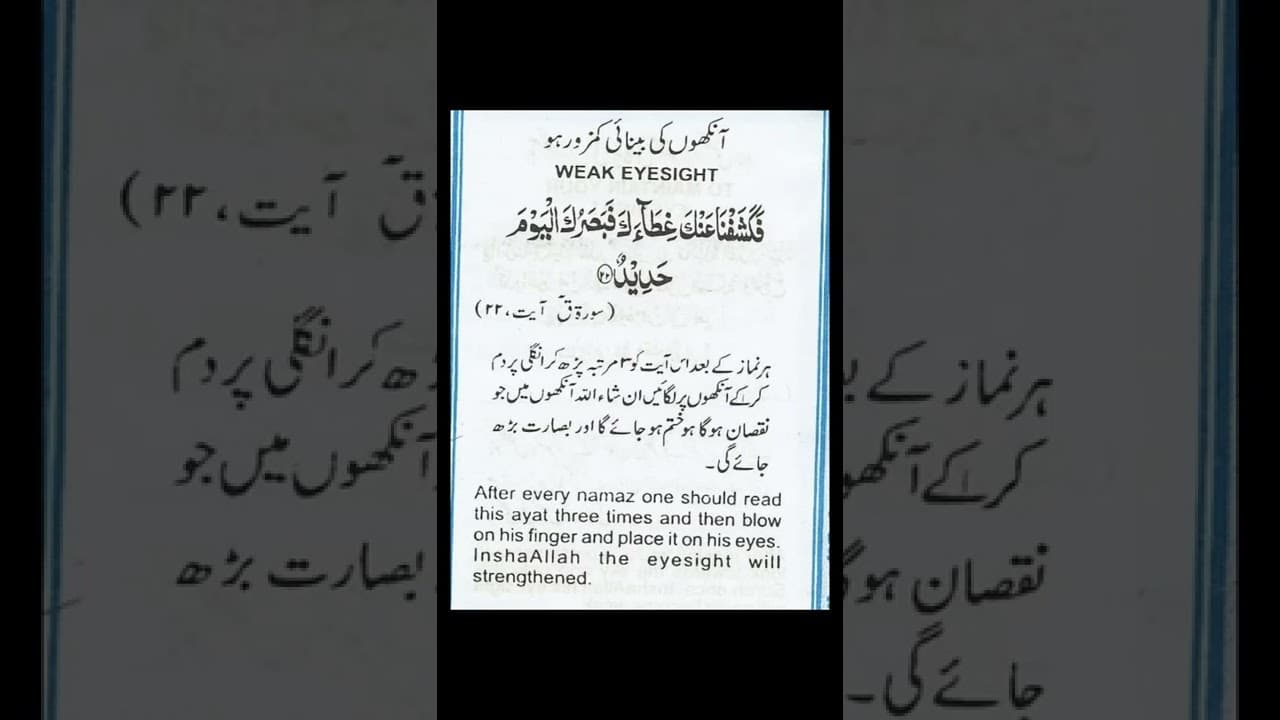 آنکھوں کی بینائی کمزور ہو
WEAK EYESIGHT
فَكَشَفْنَا عَنْكَ غِطَآءَكَ فَبَصَرُكَ الْيَوْمَ
حَدِيْدٌ ۝۲۲
(سورۃ قٓ آیت، ۲۲)
ہر نماز کے بعد اس آیت کو ۳ مرتبہ پڑھ کر انگلی پر دم
کرکے آنکھوں پر لگائیں ان شاء اللہ آنکھوں میں جو
نقصان ہوگا ہو ختم ہو جائے گا اور بصارت بڑھ
جائے گی۔
After every namaz one should read
this ayat three times and then blow
on his finger and place it on his eyes.
InshaAllah the eyesight will
strengthened.